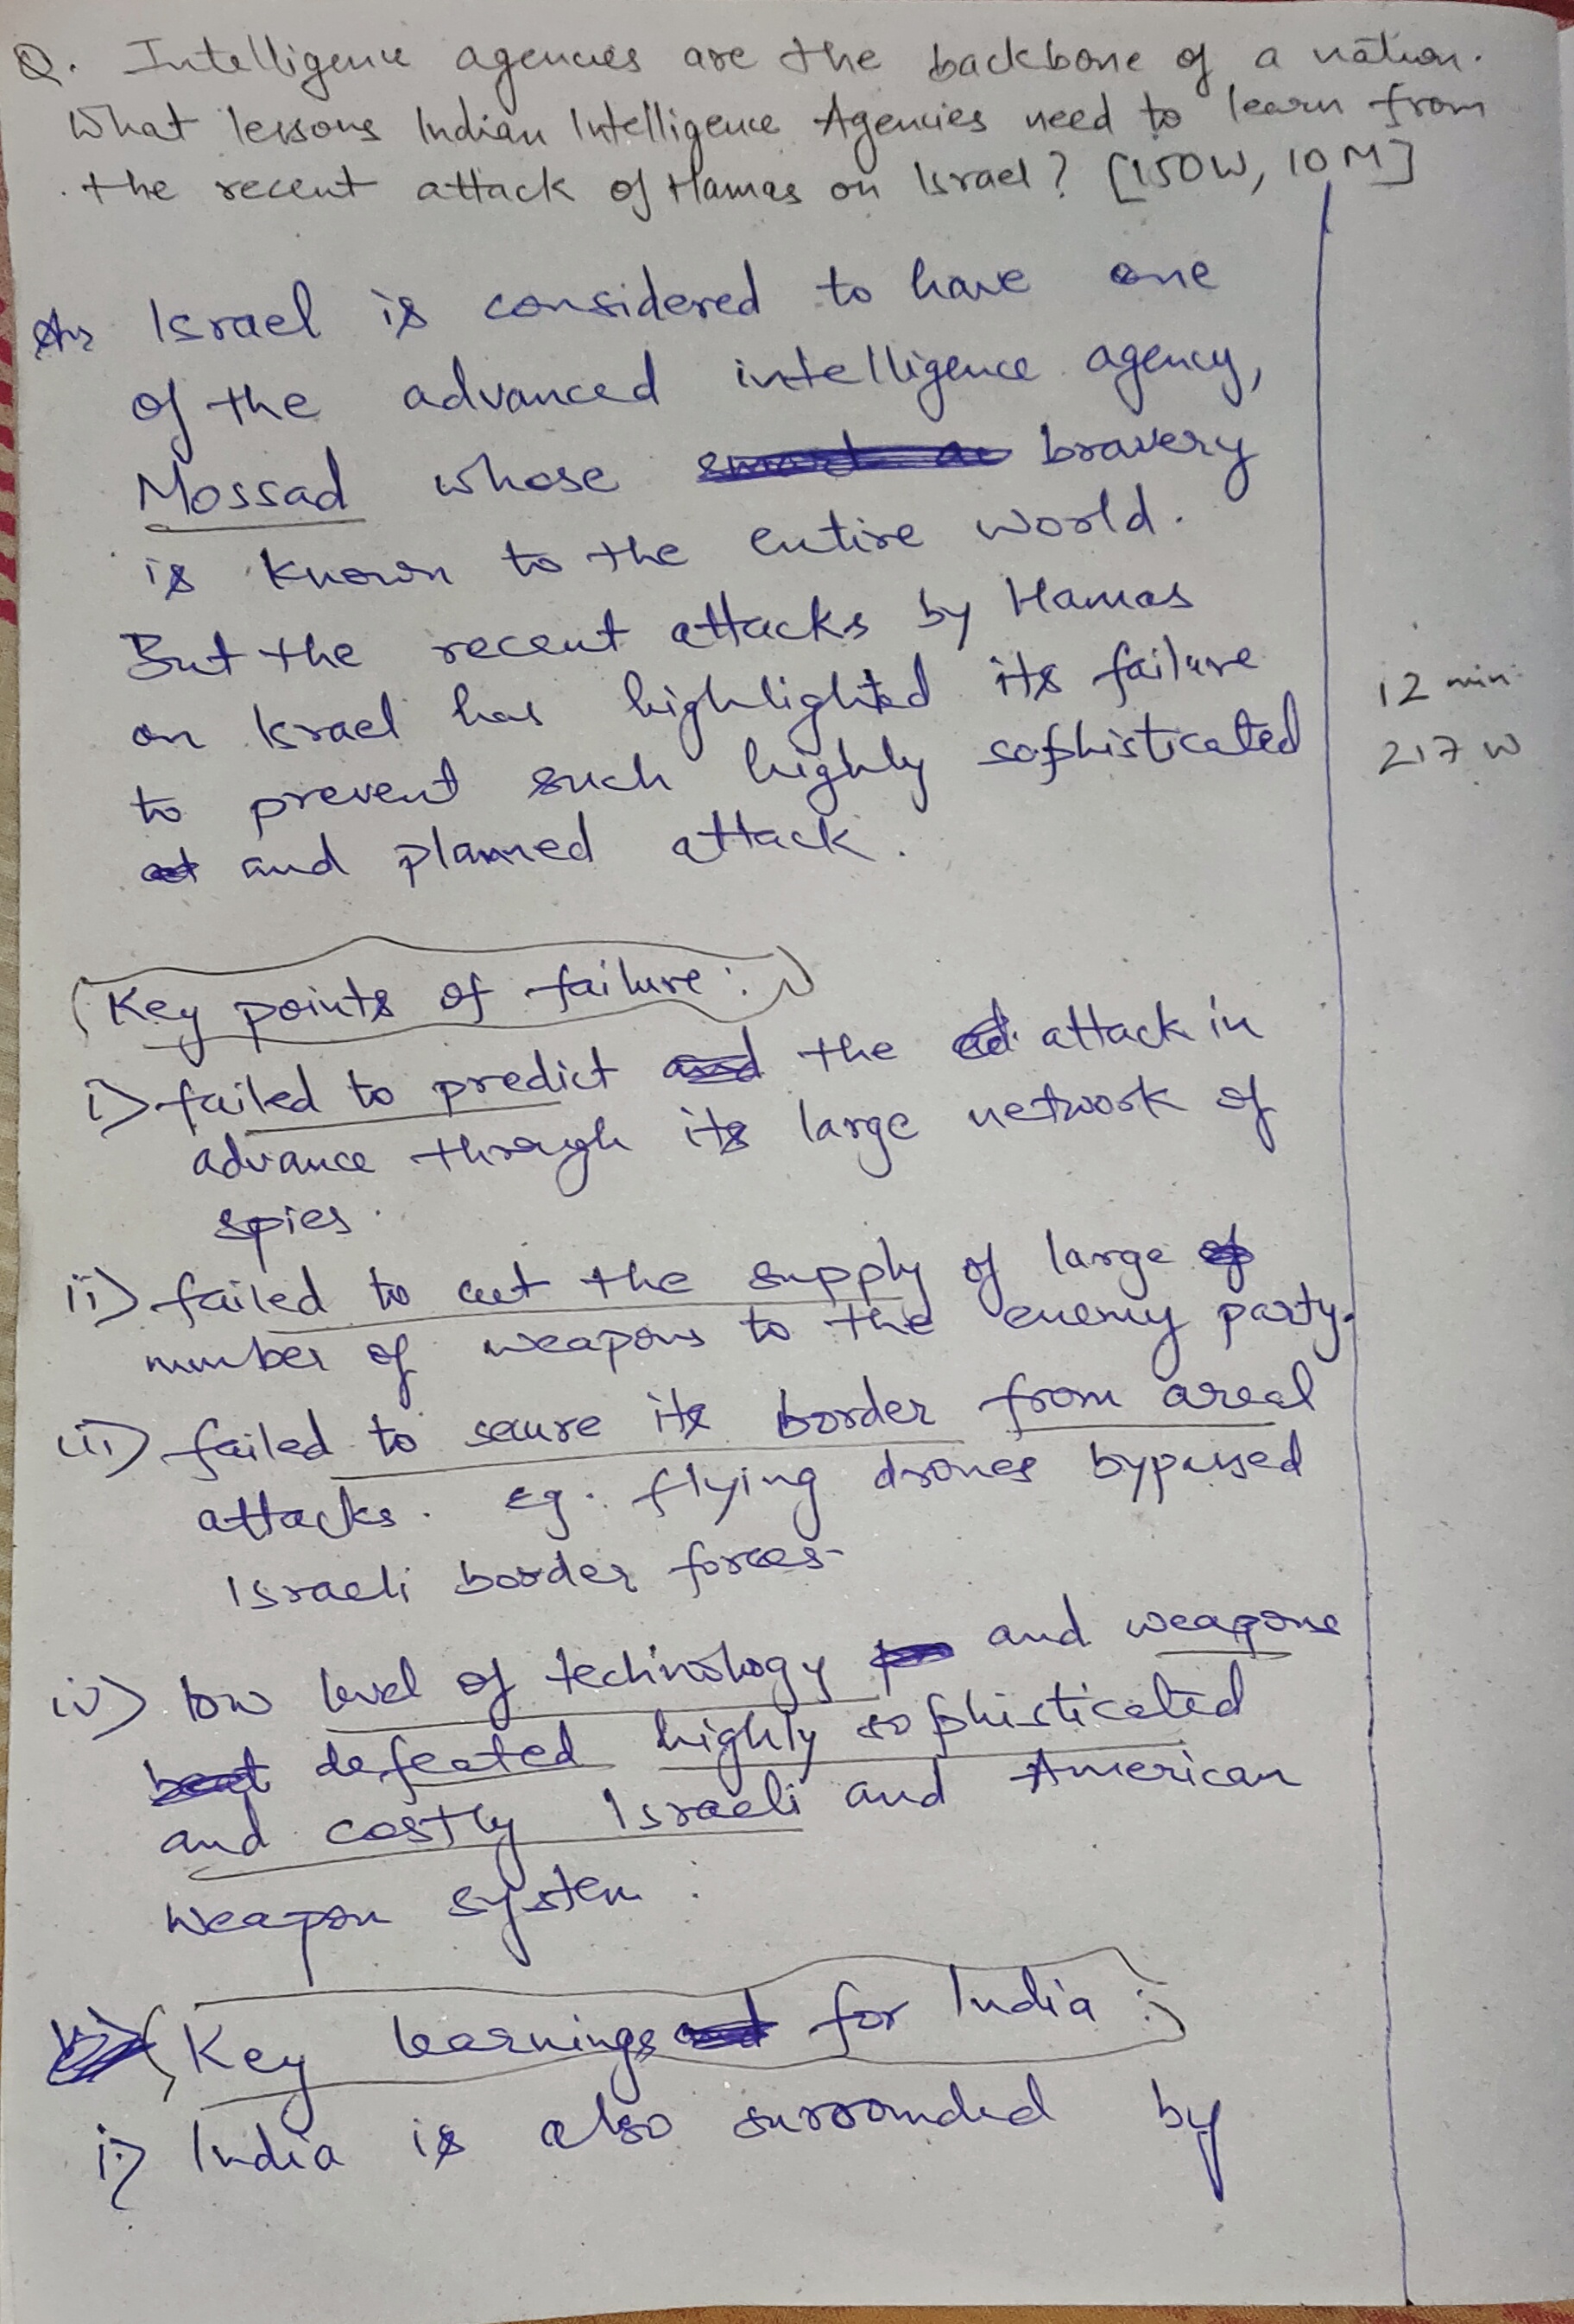 Q. Intelligence agencies are the backbone of a nation.
What lessons Indian Intelligence Agencies need to learn from
the recent attack of Hamas on Israel? [150W, 10M]
Ans Israel is considered to have one
of the advanced intelligence agency,
Mossad whose bravery
is known to the entire world.
But the recent attacks by Hamas
on Israel has highlighted its failure
to prevent such highly sophisticated
and planned attack.
12 min
217 W
Key points of failure:
i) failed to predict the attack in
advance through its large network of
spies.
ii) failed to cut the supply of large
number of weapons to the enemy party.
iii) failed to secure its border from areal
attacks. eg. flying drones bypassed
Israeli border forces.
iv) low level of technology and weapons
defeated highly sophisticated
and costly Israeli and American
weapon system.
Key learnings for India:
i) India is also surrounded by